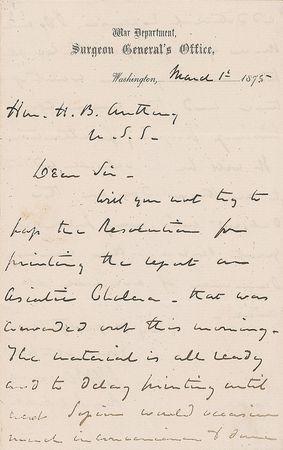 War Department,
Surgeon General's Office,
Washington, March 1st 1875
Hon. H. B. Anthony
U.S.S.
Dear Sir -
Will you not try to
pass the Resolution for
printing the report on
Asiatic Cholera - that was
out this morning -
The material is all ready
and to delay printing until
next would occasion
much inconvenience &